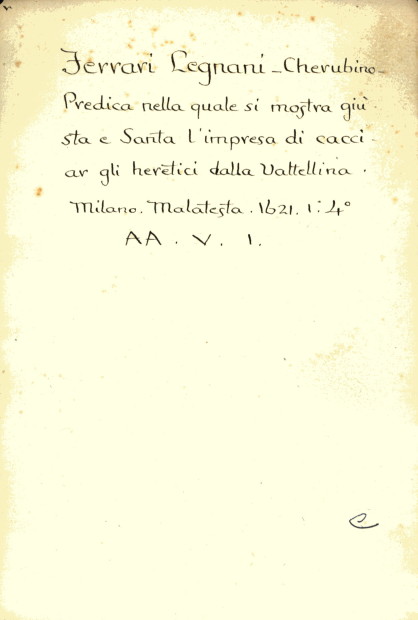 Ferrari Legnani - Cherubino -
Predica nella quale si mostra giu
sta e Santa l'impresa di cacci -
ar gli heretici dalla Vattellina .
Milano. Malatesta. 1621. 1: 4°
AA . V . 1 .
e